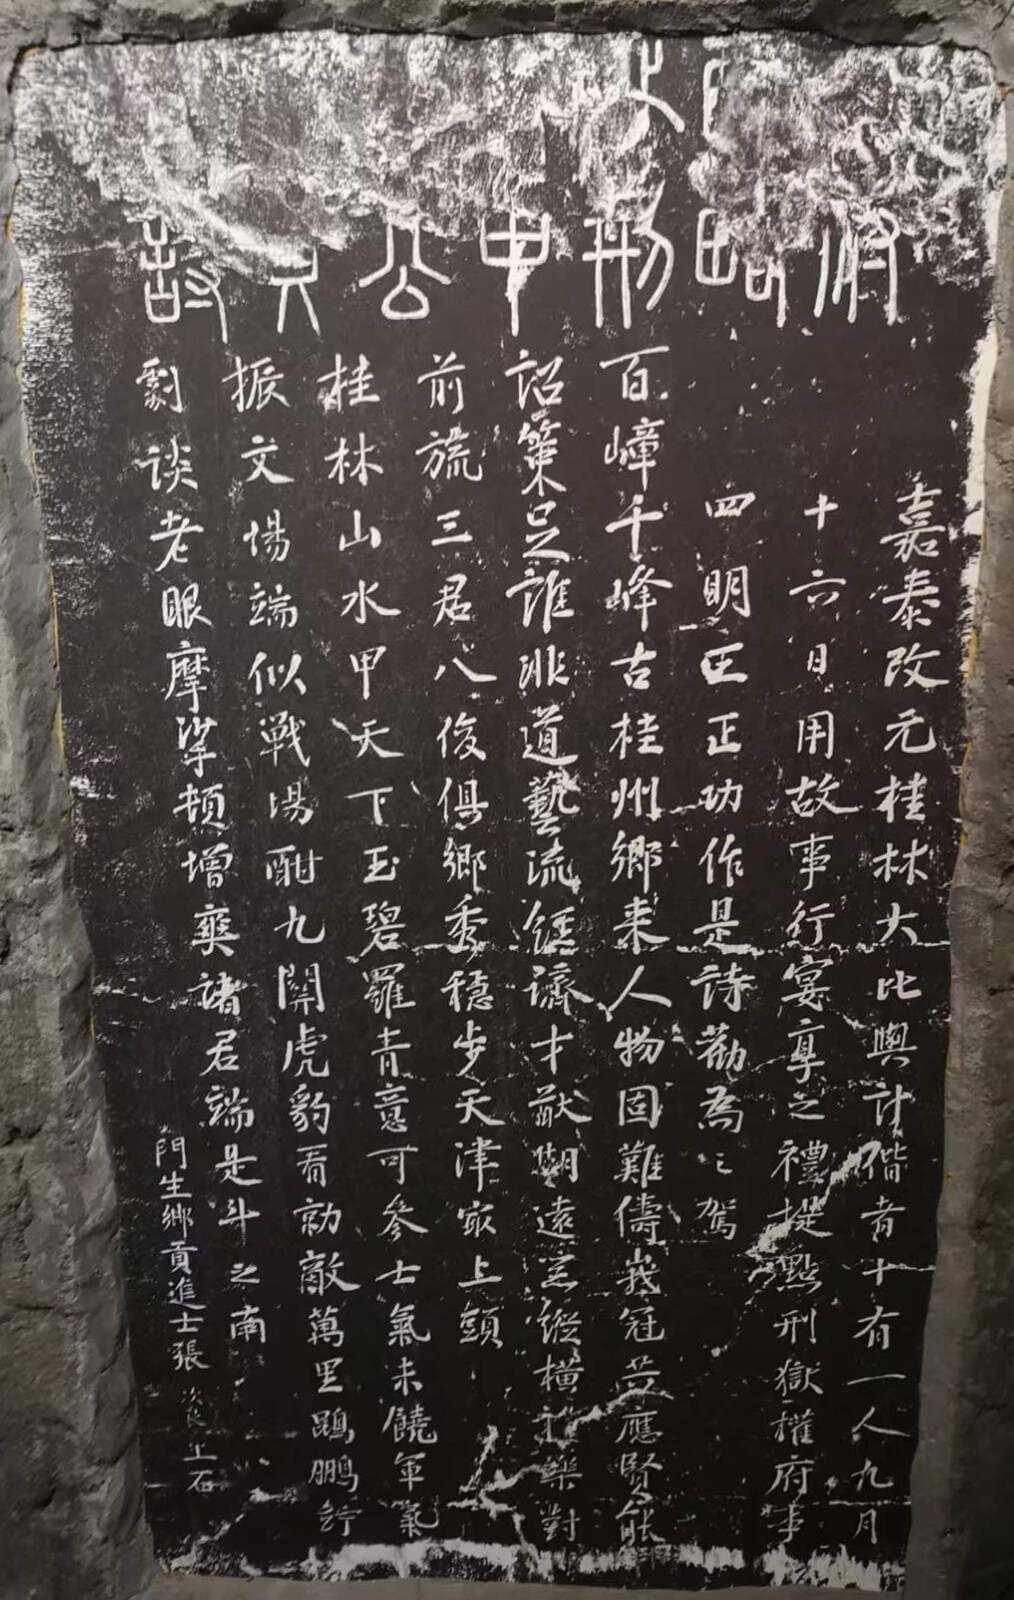 府略刑中公詩
嘉泰改元桂林大比與計偕者十有一人九月
十六日用故事行宴享之禮提點刑獄權府事
四明王正功作是詩勸為之駕
百嶂千峰古桂州鄉來人物固難儔峩冠共應賢能
詔策足誰非道藝流經濟才猷期遠器縱橫禮樂對
前旒三君八俊俱鄉秀穩步天津最上頭
桂林山水甲天下玉碧羅青意可參士氣未饒軍氣
振文場端似戰場酣九關虎豹看勍敵萬里鵾鵬竚
劇談老眼摩挲頓增爽諸君端是斗之南
門生鄉貢進士張次良上石